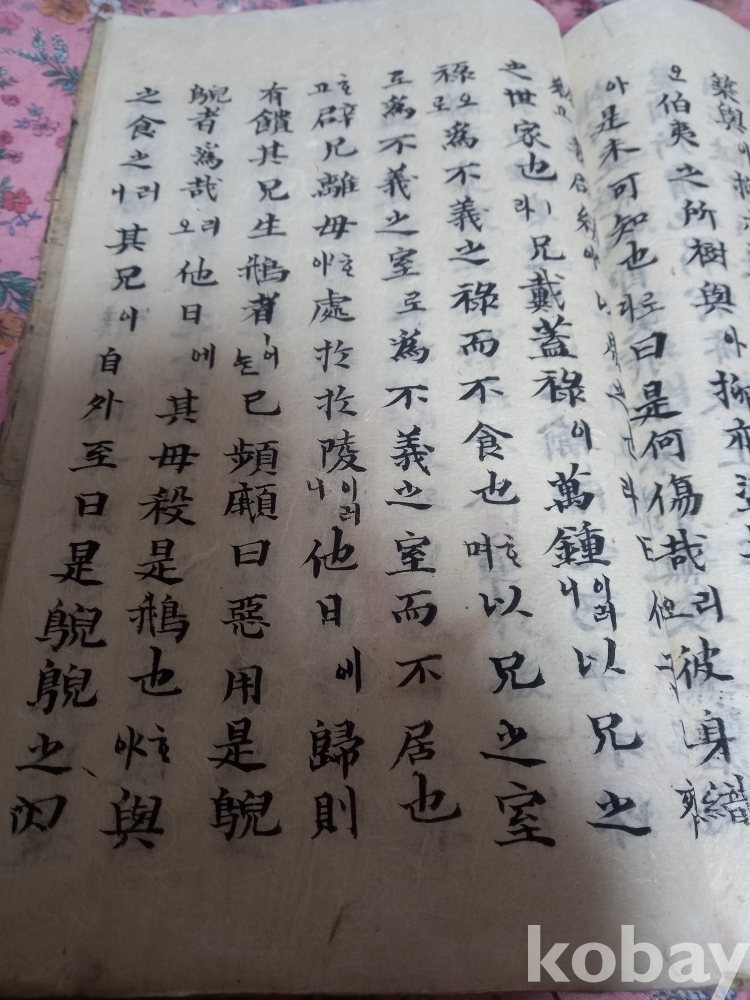 築與이
오伯夷之所樹與아抑亦盜
아是未可知也라로曰是何傷哉리彼身
之世家也라ㅣ兄戴蓋祿이萬鍾이러니以兄之
祿오로爲不義之祿而不食也호며以兄之室
로爲不義之室로爲不義之室而不居也
호고辟兄離母호야處於於陵이러니他日에歸則
有饋其兄生鵝者ㅣ어늘已頻顣曰惡用是鶃
鶃者爲哉리오他日에其母殺是鵝也호야與
之食之러니其兄이自外至曰是鶃鶃之肉
kobay